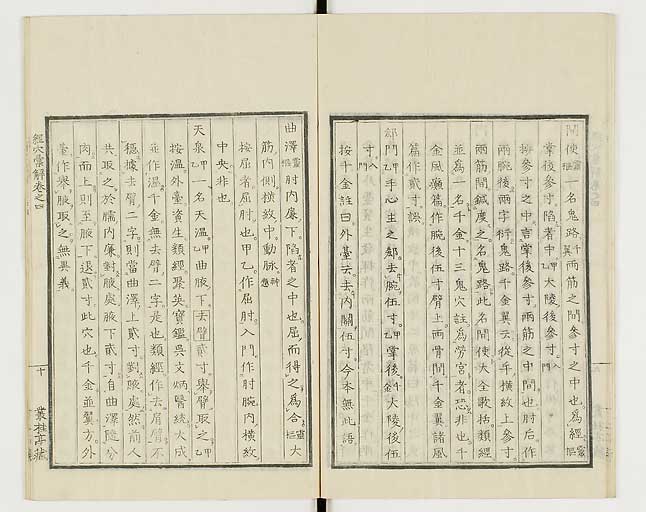 間使靈樞一名鬼路千翼兩筋之間參寸之中也爲經靈樞
掌後參寸陷者中甲乙大陵後參寸入門
按參寸之中言掌後參寸兩筋之中間也肘后作
兩腕後兩字衍鬼路千金翼云從手橫紋上參寸
兩筋間鍼度之名鬼路此名間使大全歌括類經
並爲一名千金十三鬼穴註爲勞宮者恐非也千
金風癩篇作腕後伍寸臂上兩骨間千金翼諸風
篇作貳寸誤
郄門甲乙手心主之郄去腕伍寸甲乙掌後千金大陵後伍
寸入門
按千金註曰外臺去去內關伍寸今本無此語
曲澤靈樞肘內廉下陷者之中也屈而得之爲合靈樞大
筋內側橫紋中動脉
按屈者屈肘也甲乙作屈肘入門作肘腕內橫紋
中央非也
天泉甲乙一名天溫甲乙曲腋下去臂貳寸擧臂取之甲乙
按溫外臺資生類經聚英寶鑑吳文炳醫統大成
並作溫千金無去臂二字是也類經作去肩臂不
穩據去臂二字則當曲澤上貳寸對腋處然前人
共取之於臑內廉對腋處腋下貳寸自曲澤隨分
肉而上則至腋下退貳寸此穴也千金並翼方外
臺作擧腋取之無異義
經穴彙解卷之四
十
叢桂亭藏